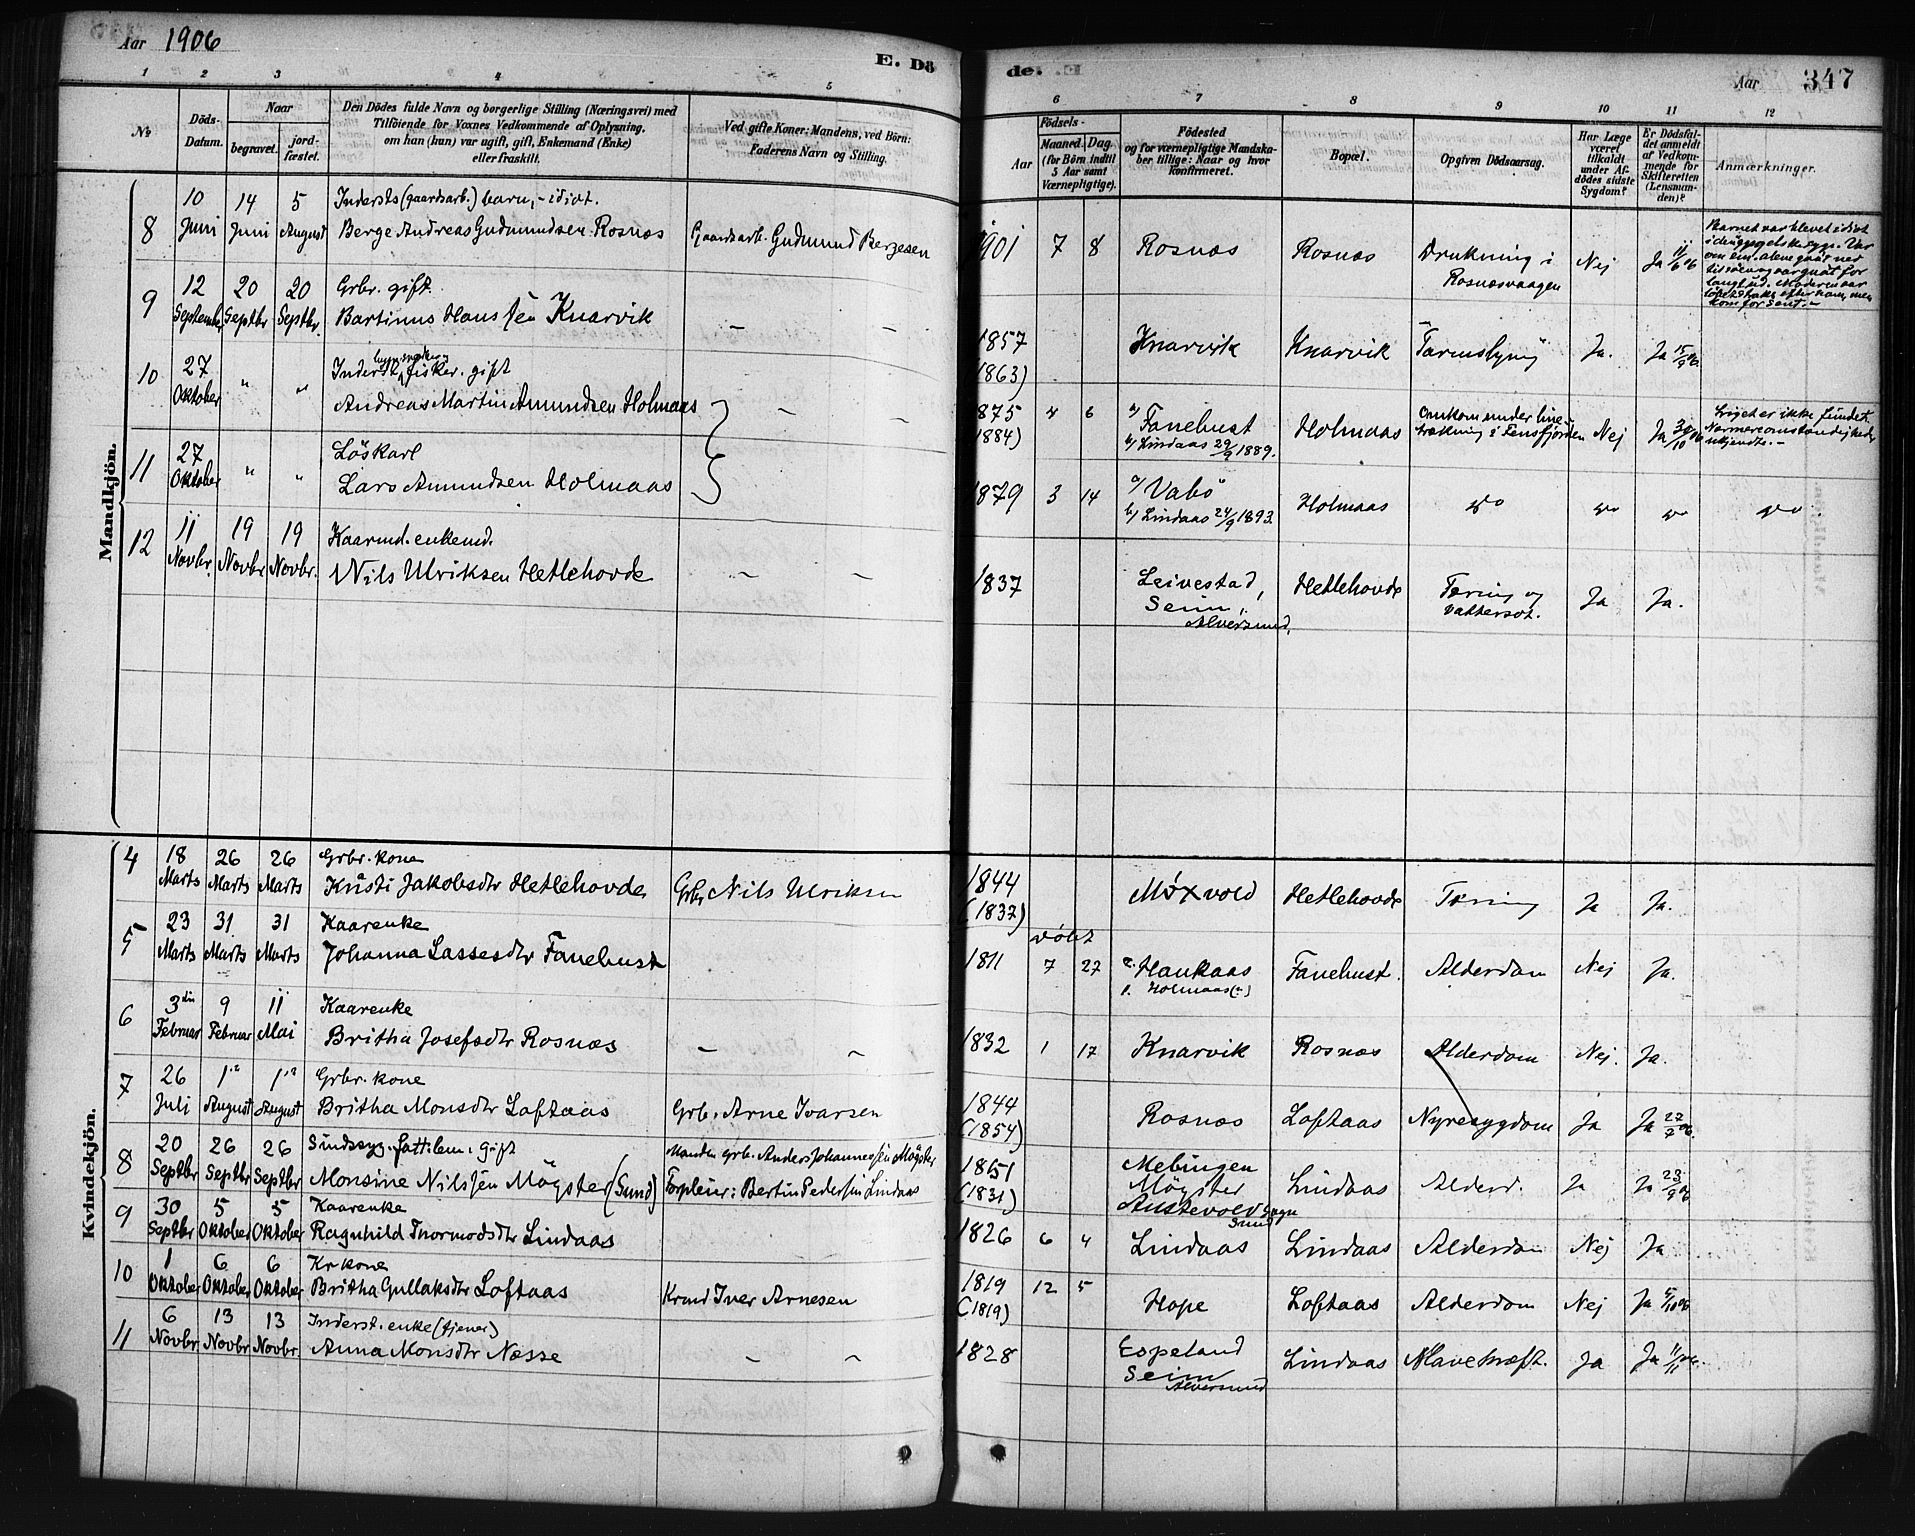 Aar 1906
E. Dö
de.
Aar 347
1 2 3 4 5
6 7 8 9 10 11 12
№
Döds-
Datum.
Naar
begravet.
jord-
fæstet.
Den Dödes fulde Navn og borgerlige Stilling (Næringsvei) med
Tilföiende for Voxnes Vedkommende af Oplysning,
om han (hun) var ugift, gift, Enkemand (Enke)
eller fraskilt.
Ved gifte Koner: Mandens, ved Börn:
Faderens Navn og Stilling.
Födsels-
Aar
Maaned. Dag
(for Börn indtil
5 Aar samt
Værnepligtige).
Födested
og for værnepligtige Mandska-
ber tillige: Naar og hvor
konfirmeret.
Bopæl.
Opgiven Dödsaarsag.
Har Læge
været
tilkaldt
under Af-
dödes sidste
Sygdom?
Er Dödsfal-
det anmeldt
af Vedkom-
mende for
Skifteretten
(Lensman-
den)?
Anmærkninger.
Mandkjön.
10 14 5 Indersts (gaardsarb.) barn, - idiot.
8 Juni Juni August Berge Andreas Gudmundsen Rosnæs Gaardsarb. Gudmund Bergesen
1901 7 8 Rosnæs Rosnæs Drukning i
Rosnæsvaagen
Nej Ja 11/6 06
Barnet var blevet idiot
12 20 20 Grbr. gift.
9 September Septbr Septbr. Bartinus Hanssen Knarvik - -
1857
(1863)
Knarvik Knarvik Ja. Ja 15/9 06
27 Inderst, fisker. gift
10 Oktober " " Andreas Martin Amundsen Holmaas - -
1875
(1884)
4 6 a/ Fanebust
b/ Lindaas 29/9 1889.
Holmaas Omkom under line-
trækning i Fensfjorden
Nej Ja 30/10 06
Liget er ikke fundet.
Nærmere omstændigheder
ukjendte. -
27 Löskarl
11 Oktober " " Lars Amundsen Holmaas
1879 3 14 a/ Vabö
b/ Lindaas 24/9 1893.
Holmaas do do do do
11 19 19 Kaarmd. enkemd.
12 Novbr. Novbr Novbr. Nils Ulriksen Hetlehovde - -
1837 Leivestad,
Seim,
Alversund,
Hetlehovde Tæring og
vattersot.
Ja Ja.
Kvindekjön.
18 26 26 Grbr. kone
4 Marts Marts Marts Kristi Jakobsdtr Hetlehovde Grbr Nils Ulriksen
1844
(1837)
Hetlehovde Tæring Ja Ja.
23 31 31 Kaarenke
5 Marts Marts Marts Johanna Lassesdtr Fanebust
döbt
1811 7 27 Haukaas
Holmaas (?)
Fanebust. Alderdom Nej Ja.
3die 9 11 Kaarenke
6 Februar Februar Mai Britha Josefsdtr Rosnæs - -
1832 1 17 Knarvik Rosnæs Alderdom Nej. Ja.
26 1ste 1ste Grbr. kone
7 Juli August August Britha Monsdtr Loftaas Grbr. Arne Ivarsen
1844
(1854)
Rosnæs Loftaas Nyresygdom Ja Ja 27/7 06.
20 26 26 Sindssyg. fattilem. gift
8 Septbr Septbr Septbr Monsine Nilssen Mögster (Sund)
Manden grb. Anders Johannessen Mögster
Forpleier: Bertin Pedersen Lindaas
1851
(1831)
Mebingen
Mögster
Austevold Sogn
Sund
Lindaas Alderd. Ja Ja 23/9 06
30 5 5 Kaarenke
9 Septbr Oktober Oktober Ragnhild Thormodsdtr Lindaas
1826 6 4 Lindaas Lindaas Alderdom Nej Ja
1 6 6 Kr kone
10 Oktober Oktober Oktober Britha Gullaksdtr Loftaas Krmd Iver Arnesen
1819
(1819)
12 5 Hope Loftaas Alderdom Nej Ja 5/10 06
6 13 13 Inderst. enke (tjener)
11 Novbr. Novbr. Novbr. Anna Monsdtr Næsse - -
1828 Espeland
Seim
Alversund
Lindaas Mavekræft. Ja Ja 11/11 06.